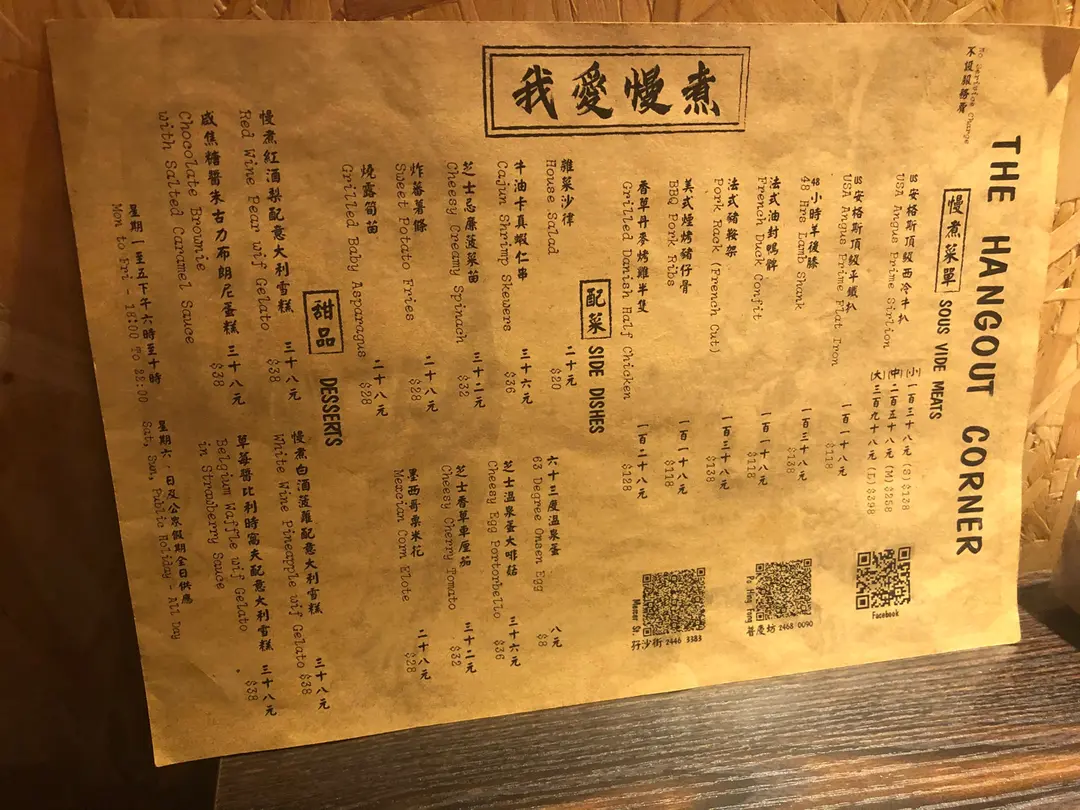 No Service Charge
不設服務費
THE HANGOUT CORNER
我愛慢煮
慢煮菜單 SOUS VIDE MEATS
安格斯頂級西冷牛扒
USA Angus Prime Sirlion
(小)一百三十八元 (S) $138
(中)二百五十八元 (M) $258
(大)三百九十八元 (L) $398
安格斯頂級平鐵扒 一百一十八元
USA Angus Prime Flat Iron $118
48小時羊後膝 一百三十八元
48 Hrs Lamb Shank $138
法式油封鴨髀 一百一十八元
French Duck Confit $118
法式豬鞍架 一百三十八元
Pork Rack (French Cut) $138
美式煙烤豬仔骨 一百一十八元
BBQ Pork Ribs $118
香草丹麥烤雞半隻 一百二十八元
Grilled Danish Half Chicken $128
Facebook
Po Hing Fong 普慶坊 2468 0090
Mercer St. 孖沙街 2446 3383
配菜 SIDE DISHES
雜菜沙律 二十元
House Salad $20
牛油卡真蝦仁串 三十六元
Cajun Shrimp Skewers $36
芝士忌廉菠菜苗 三十二元
Cheesy Creamy Spinach $32
炸蕃薯條 二十八元
Sweet Potato Fries $28
燒露筍苗 二十八元
Grilled Baby Asparagus $28
六十三度溫泉蛋 八元
63 Degree Onsen Egg $8
芝士溫泉蛋大啡菇 三十六元
Cheesy Egg Portorbello $36
芝士香草車厘茄 三十二元
Cheesy Cherry Tomato $32
墨西哥粟米花 二十八元
Mexcian Corn Elote $28
甜品 DESSERTS
慢煮紅酒梨配意大利雪糕 三十八元
Red Wine Pear wif Gelato $38
咸焦糖醬朱古力布朗尼蛋糕 三十八元
Chocolate Brownie $38
with Salted Caramel Sauce
慢煮白酒菠蘿配意大利雪糕 三十八元
White Wine Pineapple wif Gelato $38
草莓醬比利時窩夫配意大利雪糕 三十八元
Belgium Waffle wif Gelato $38
in Strawberry Sauce
星期一至五下午六時至十時 星期六、日及公眾假期全日供應
Mon to Fri - 18:00 To 22:00 Sat, Sun, Public Holiday - All Day